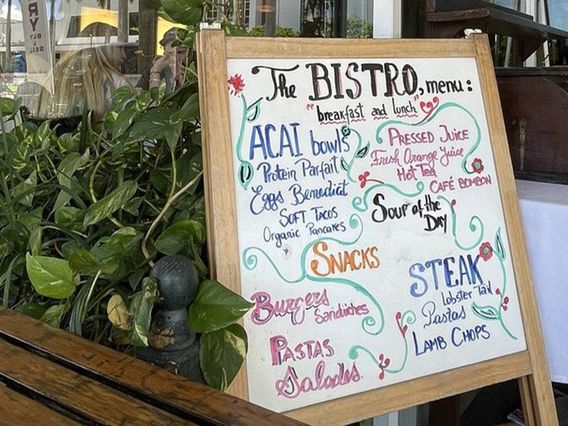 The BISTRO, menu:
"breakfast and lunch"
ACAI bowls
Protein Parfait
Eggs Benedict
SOFT TACOS
Organic Pancakes
PRESSED JUICE
Fresh Orange Juice
HOT TEA
CAFÉ BOMBON
Soup of the Day
SNACKS
Burgers
Sandwiches
PASTAS
Salades
STEAK
Lobster Tail
Pastas
LAMB CHOPS
RY